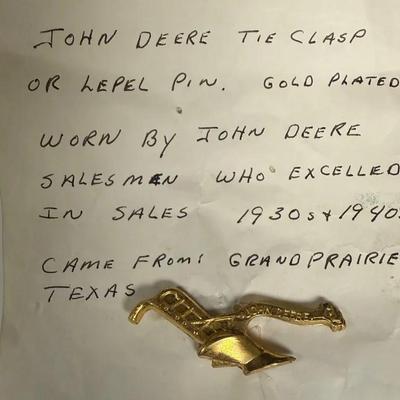 JOHN DEERE TIE CLASP
OR LEPEL PIN. GOLD PLATED
WORN BY JOHN DEERE
SALESMEN WHO EXCELLED
IN SALES 1930s & 1940s
CAME FROM: GRAND PRAIRIE
TEXAS
JOHN DEERE